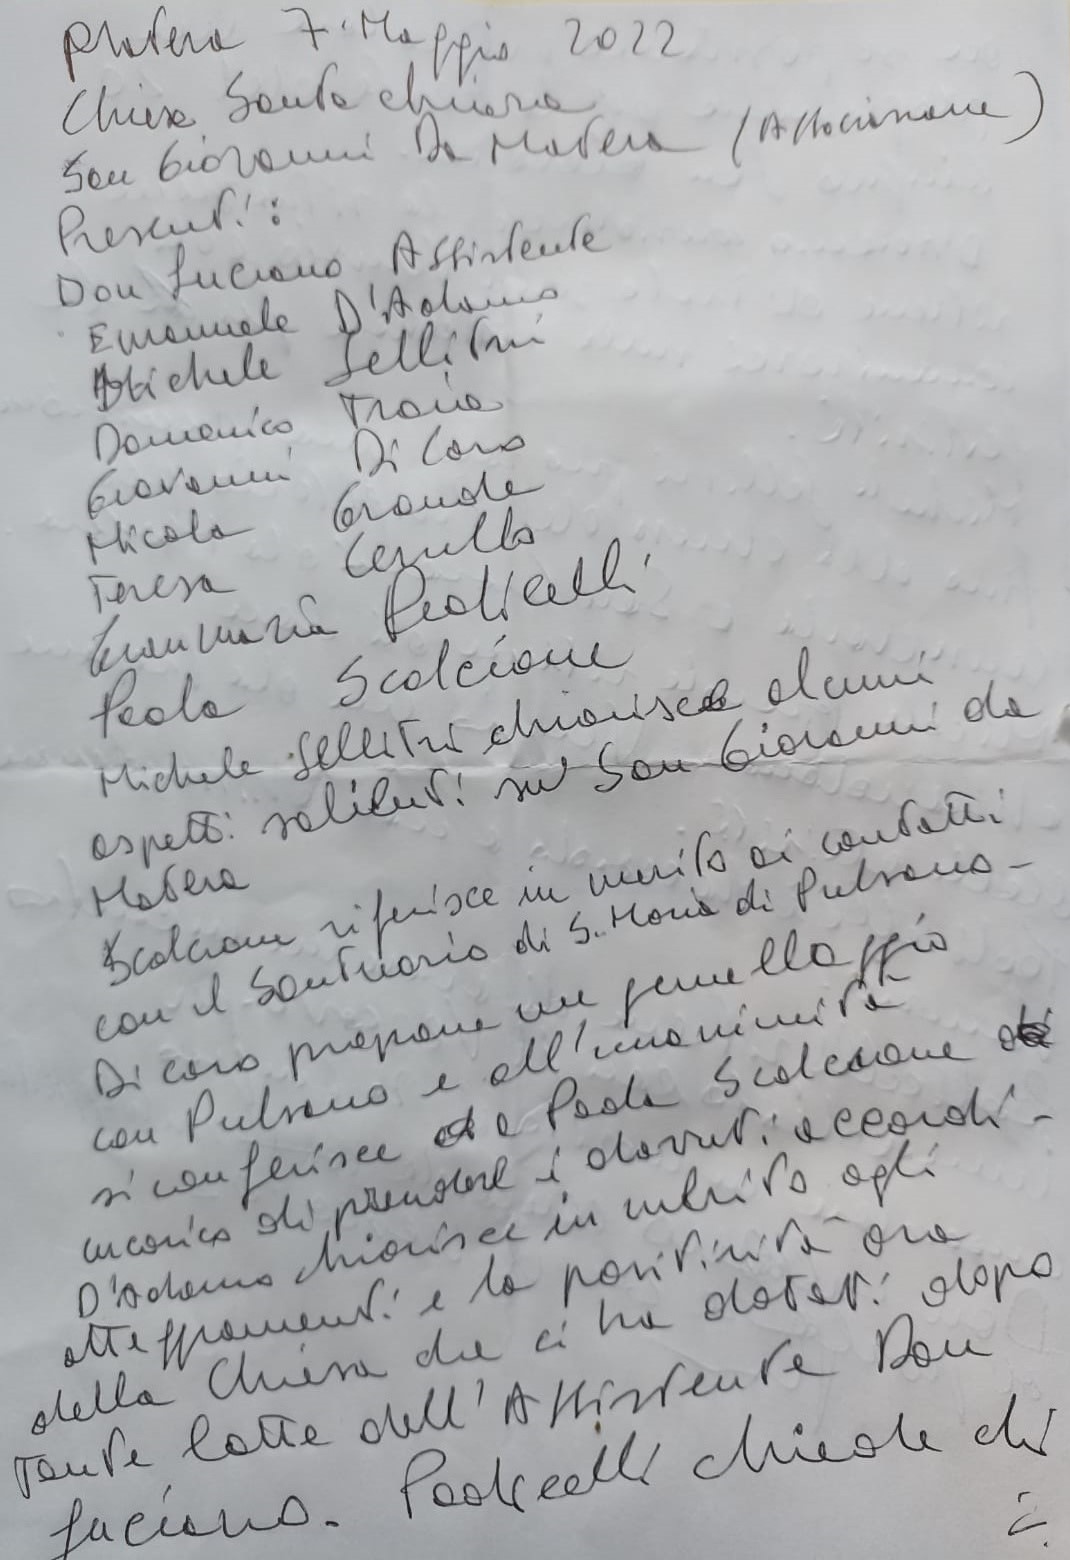 Matera 7 Maggio 2022
Chiesa Santa Chiara
San Giovanni Da Matera (Associazione)
Presenti:
Don Luciano Assistente
Emanuele D'Adamo
Michele Sellitri
Domenico Troia
Giovanni Di Caro
Nicola Grande
Teresa Cerullo
Gianmaria Padicelli
Paola Scalcione
Michele Sellitri chiarisce alcuni
aspetti salienti su San Giovanni da
Matera
Scalcione riferisce in merito ai contatti
con il Santuario di S. Maria di Pulsano -
Di Caro propone un gemellaggio
con Pulsano e all'unanimità
si conferisce a Paola Scalcione
incarico di prendere i dovuti accordi -
D'Adamo chiarisce in merito agli
atteggiamenti e la positività ora
della Chiesa che ci ha dotati dopo
tante lotte dell'Assistente Don
Luciano. Padicelli chiede di